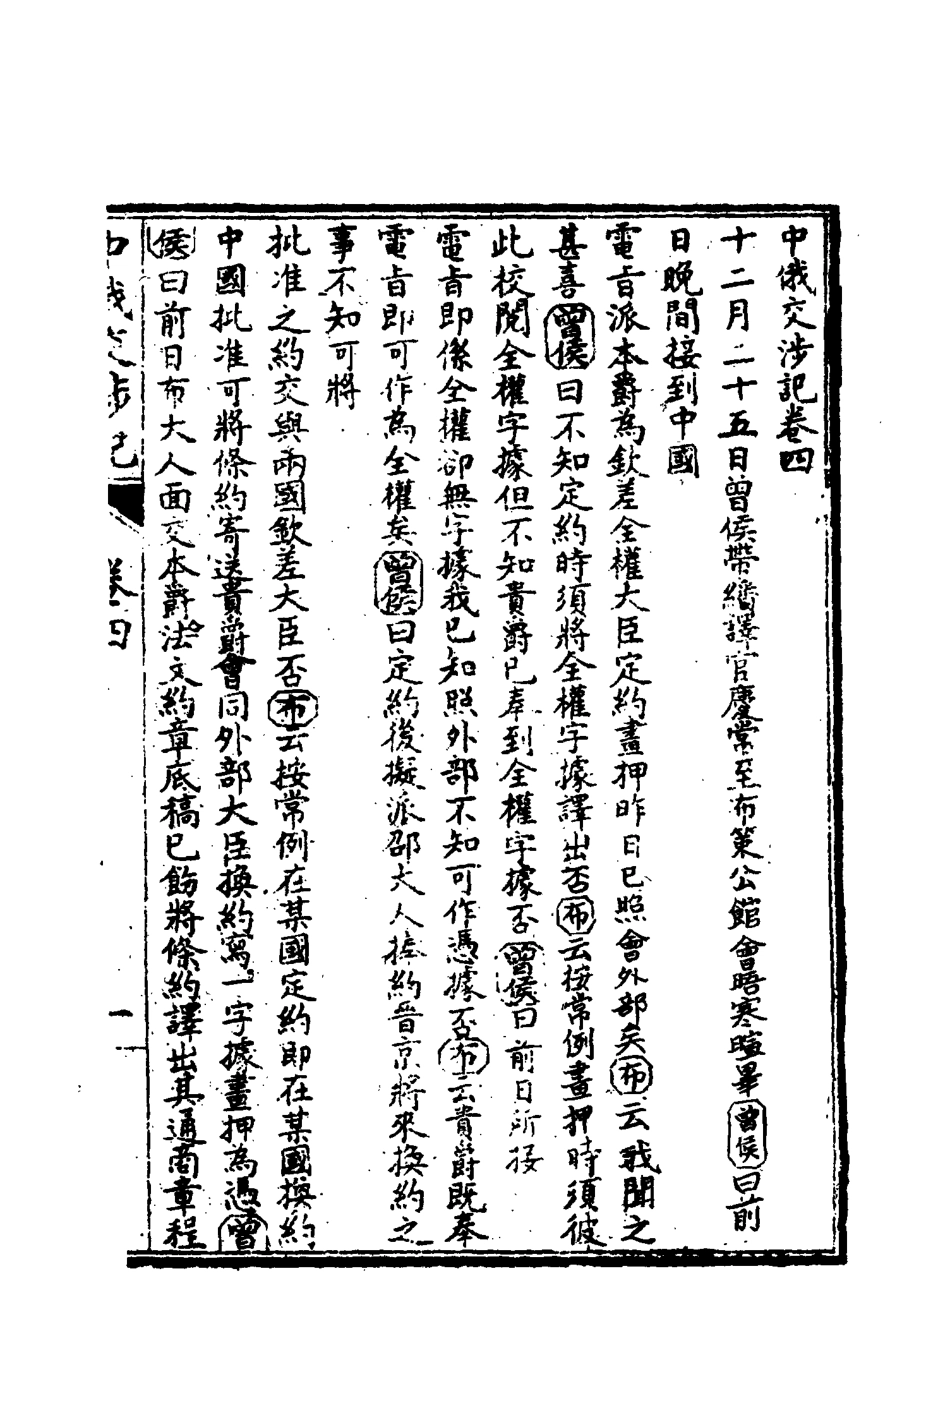 中俄交涉記卷四
十二月二十五日曾侯帶繙譯官慶常至布策公館會晤寒暄畢曾侯曰前
日晚間接到中國
電旨派本爵為欽差全權大臣定約畫押昨日已照會外部矣布云我聞之
甚喜曾侯曰不知定約時須將全權字據譯出否布云按常例畫押時須彼
此校閱全權字據但不知貴爵已奉到全權字據否曾侯曰前日所接
電旨即係全權卻無字據我已知照外部不知可作憑據否布云貴爵既奉
電旨即可作為全權矣曾侯曰定約後擬派邵大人捧約晉京將來換約之
事不知可將
批准之約交與兩國欽差大臣否布云按常例在某國定約即在某國換約
中國批准可將條約寄送貴爵會同外部大臣換約寫一字據畫押為憑曾
侯曰前日布大人面交本爵法文約章底稿已飭將條約譯出其通商章程
中俄交涉記
卷四
一